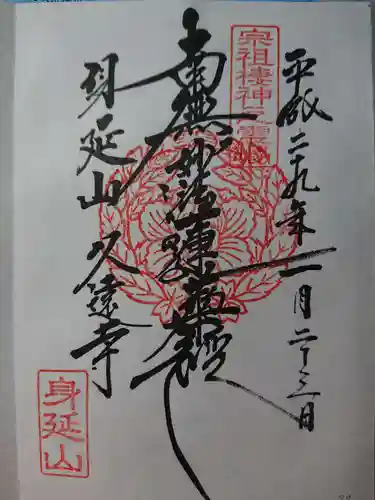 平成二十九年一月二十三日
宗祖棲神之霊山
南無妙法蓮華経
身延山久遠寺
身延山